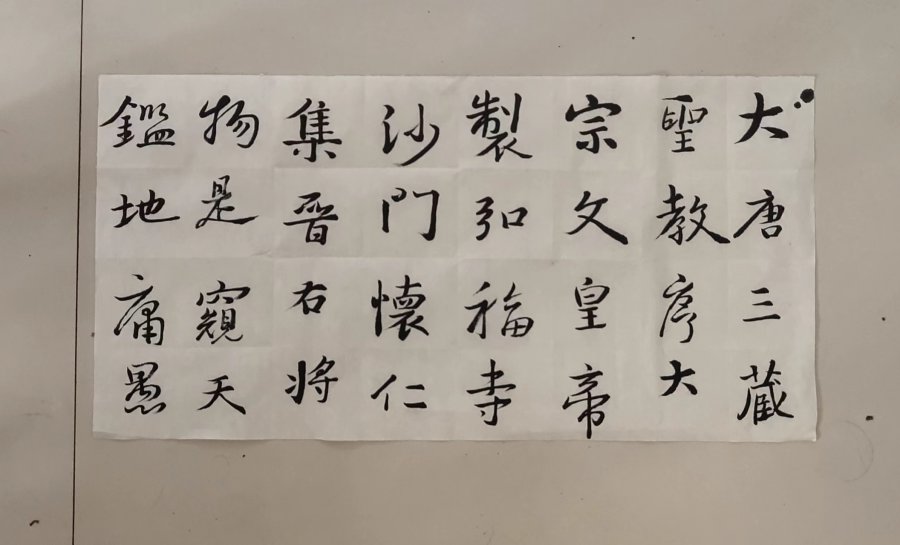 大唐三藏
聖教序大
宗文皇帝
製弘福寺
沙門懷仁
集晉右將
物是窺天
鑑地庸愚